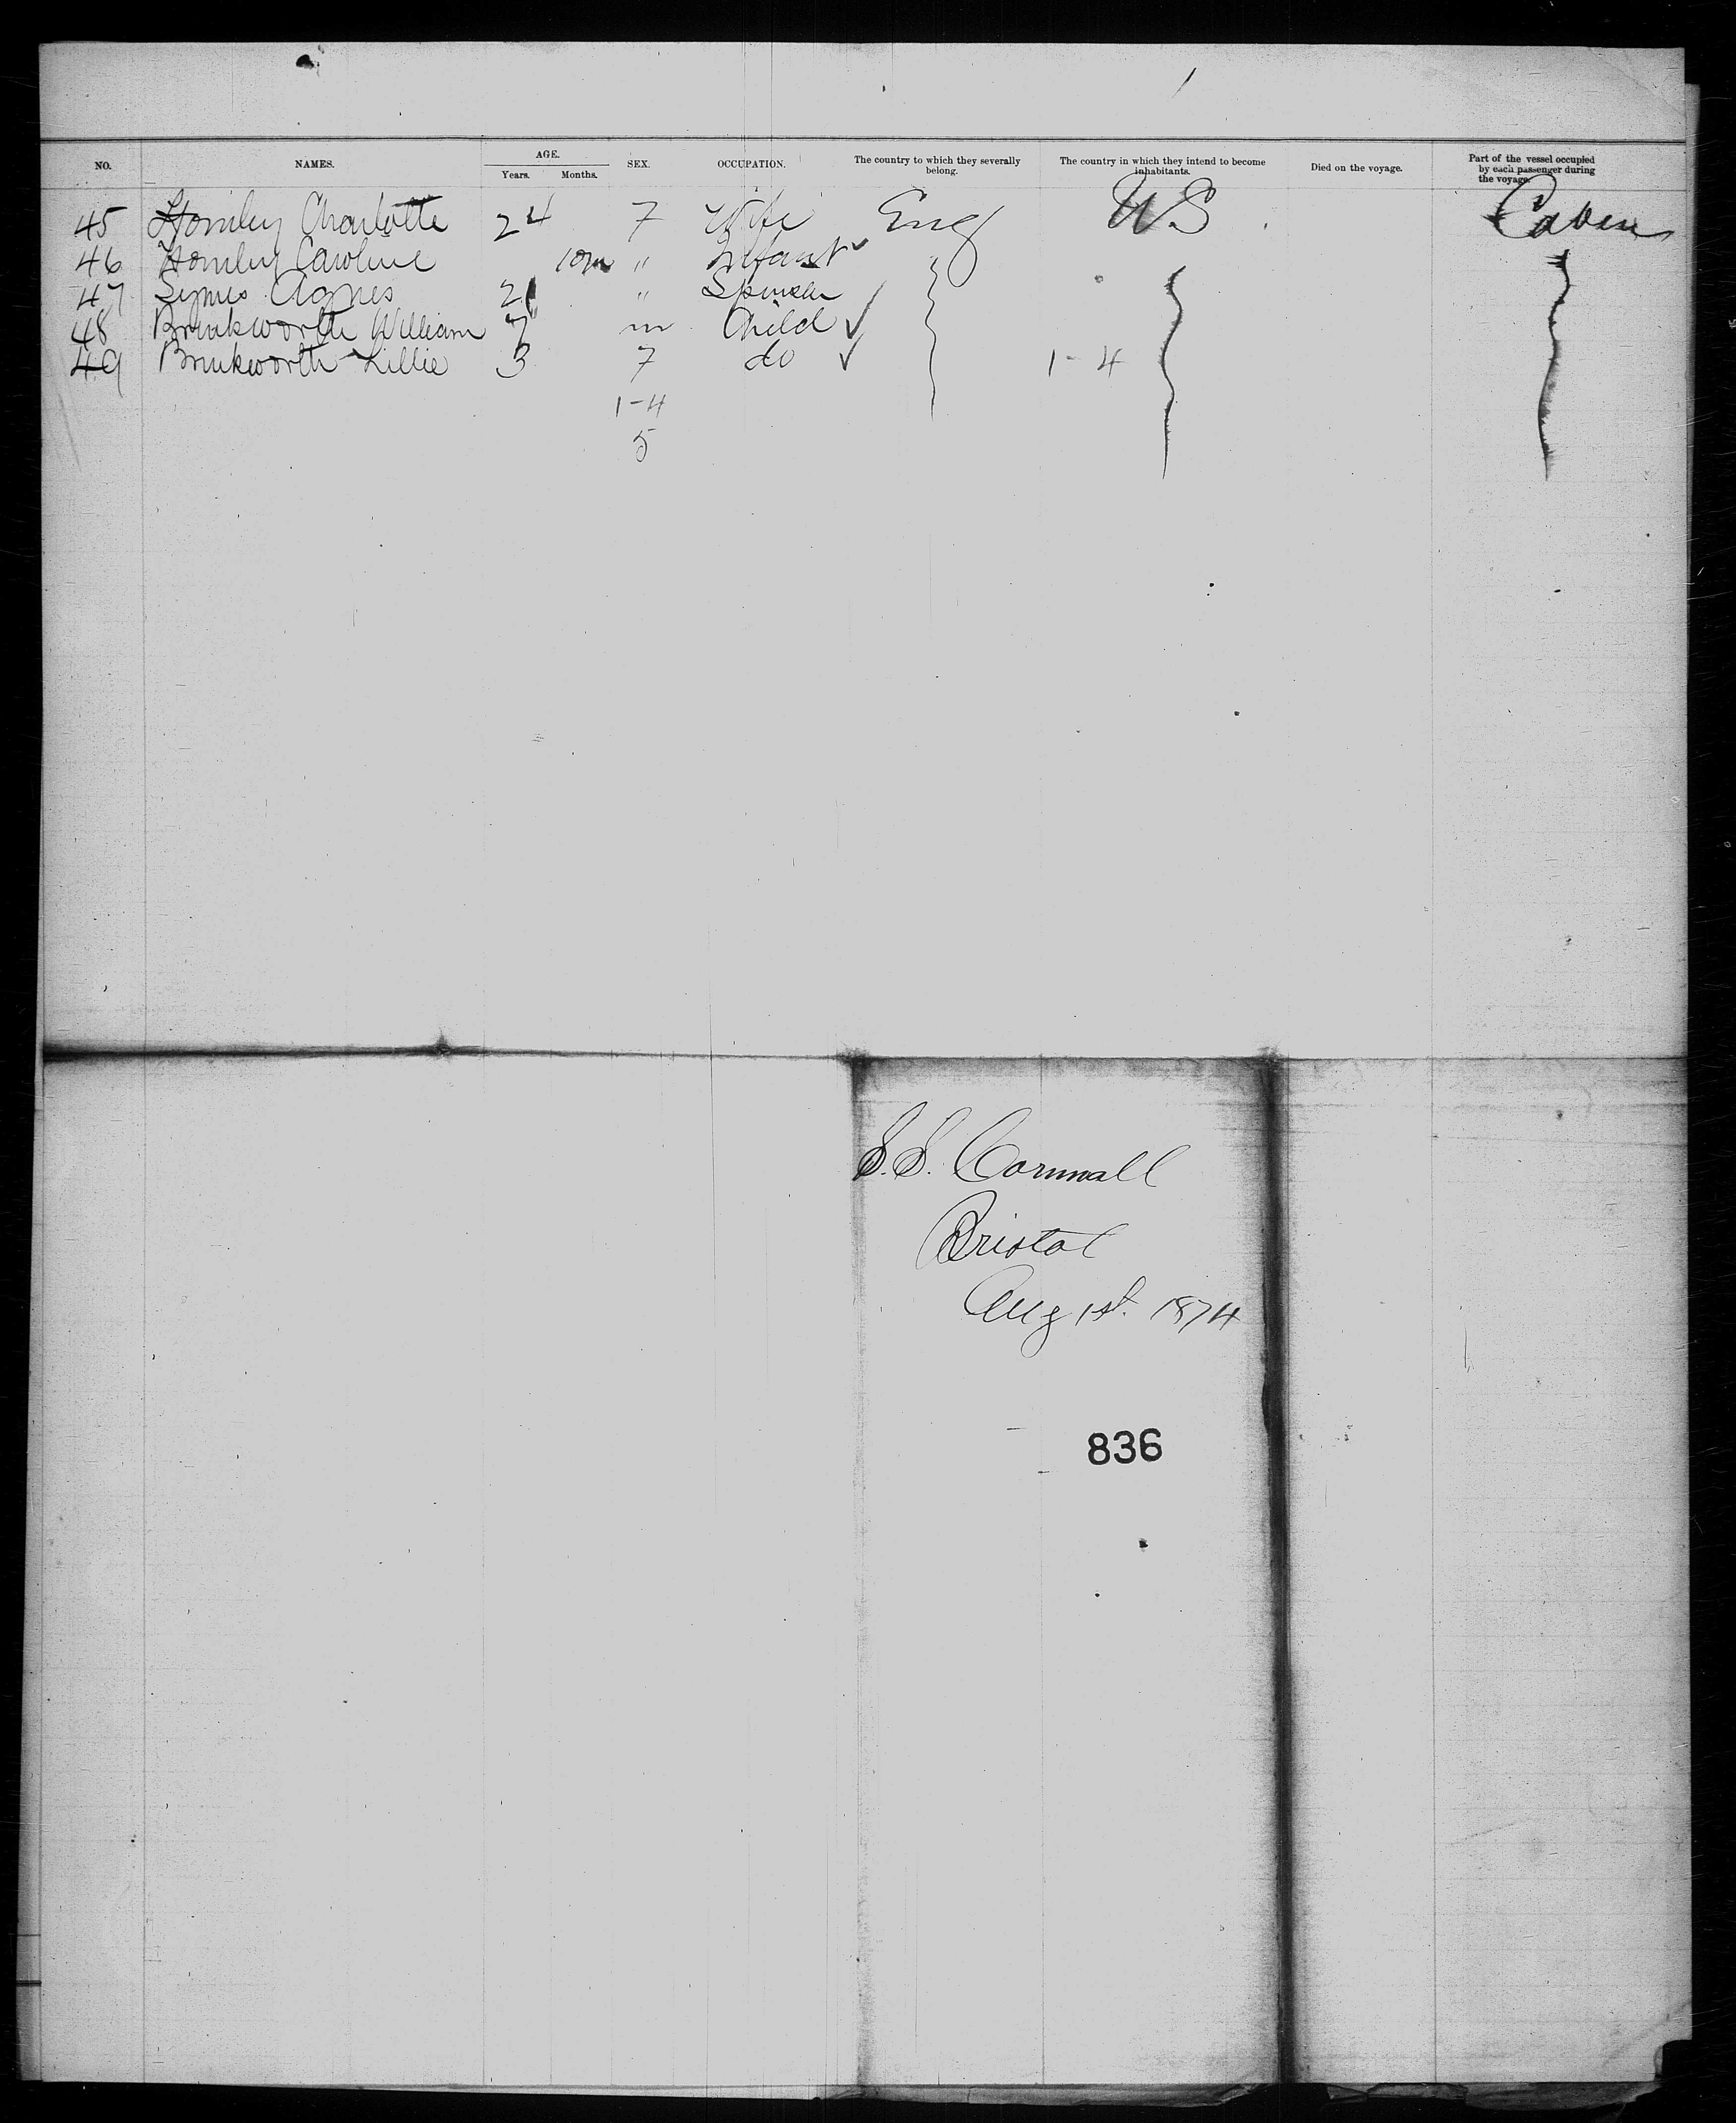 NO. NAMES. AGE. Years. Months. SEX. OCCUPATION. The country to which they severally belong. The country in which they intend to become inhabitants. Died on the voyage. Part of the vessel occupied by each passenger during the voyage.
45 Homley Charlotte 24 F Wife Eng U.S. Caben
46 Homley Caroline 10m " Infant
47 Symes Agnes 21 " Spinster
48 Brinkworth William 7 m Child
49 Brinkworth Lillie 3 F do 1-4
1-4
5
S.S. Cornwall
Bristol
Aug 1st. 1874
836